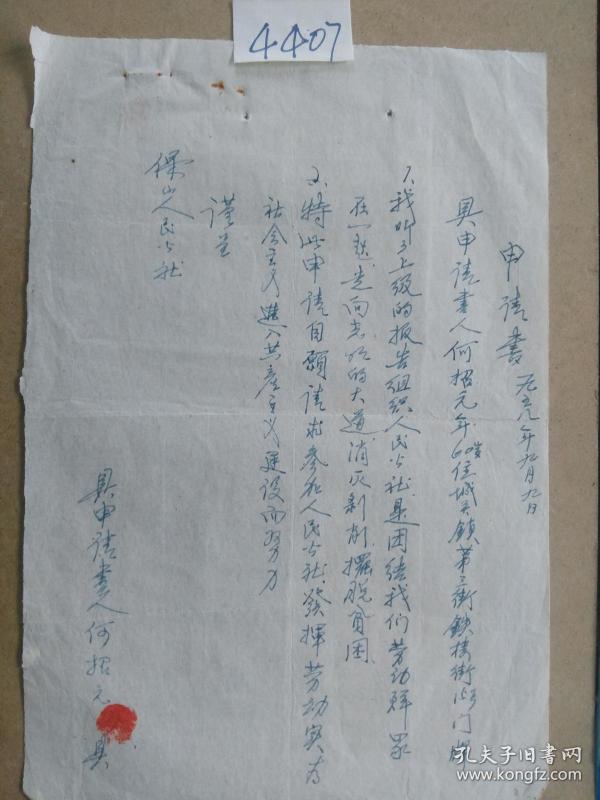 4407
申请书 一九五八年九月九日
具申请书人何招元年60岁住城关镇第三街铁楼街 门牌
1、我听了上级的报告组织人民公社是团结我们劳动群众
在一起走向光明的大道消灭剥削摆脱贫困
2、特此申请自願请求参加人民公社發揮劳动实为
社会主义進入共產主义建设而努力
谨呈
保山人民公社
具申请书人何招元 具
孔夫子旧书网
www.kongfz.com